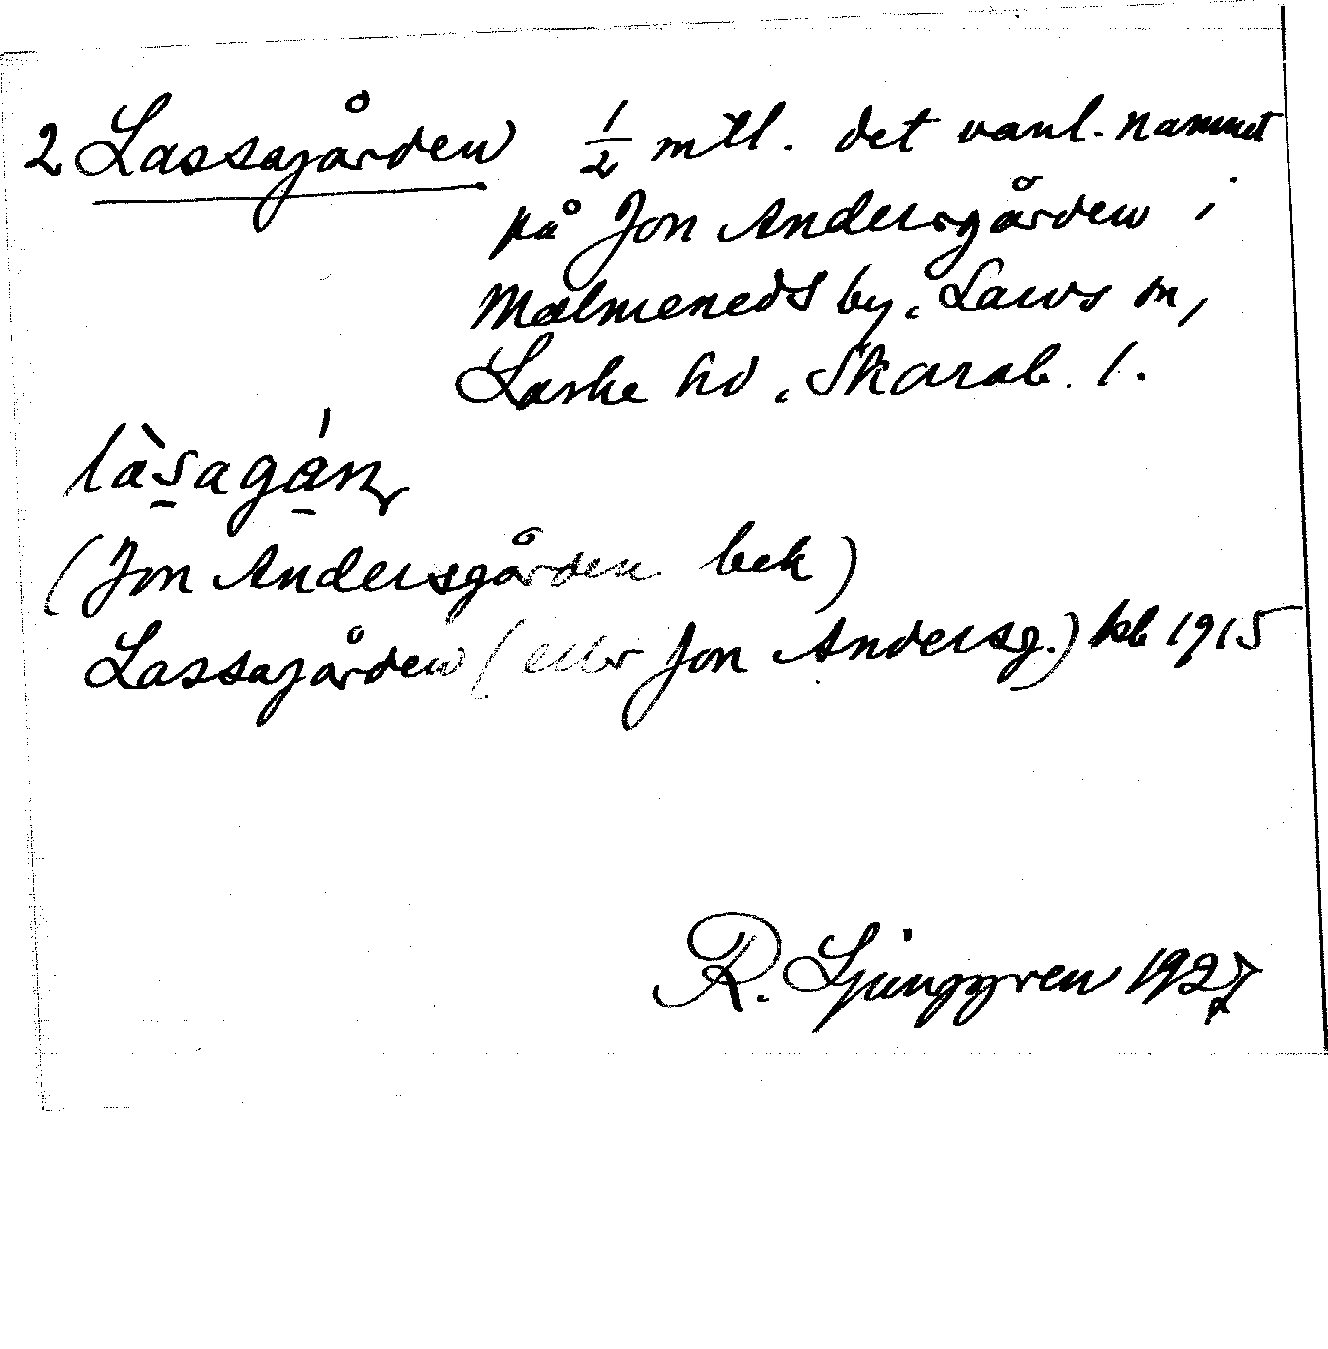 2 Lassagården 1/2 mtl. det vanl. namnet
på Jon Andersgården i
Malmeneds by, Larvs sn,
Laske hd, Skarab. l.
làsagán
(Jon Andersgården bek)
Lassagården (eller Jon Andersg.) kb 1915
R. Ljunggren 1927